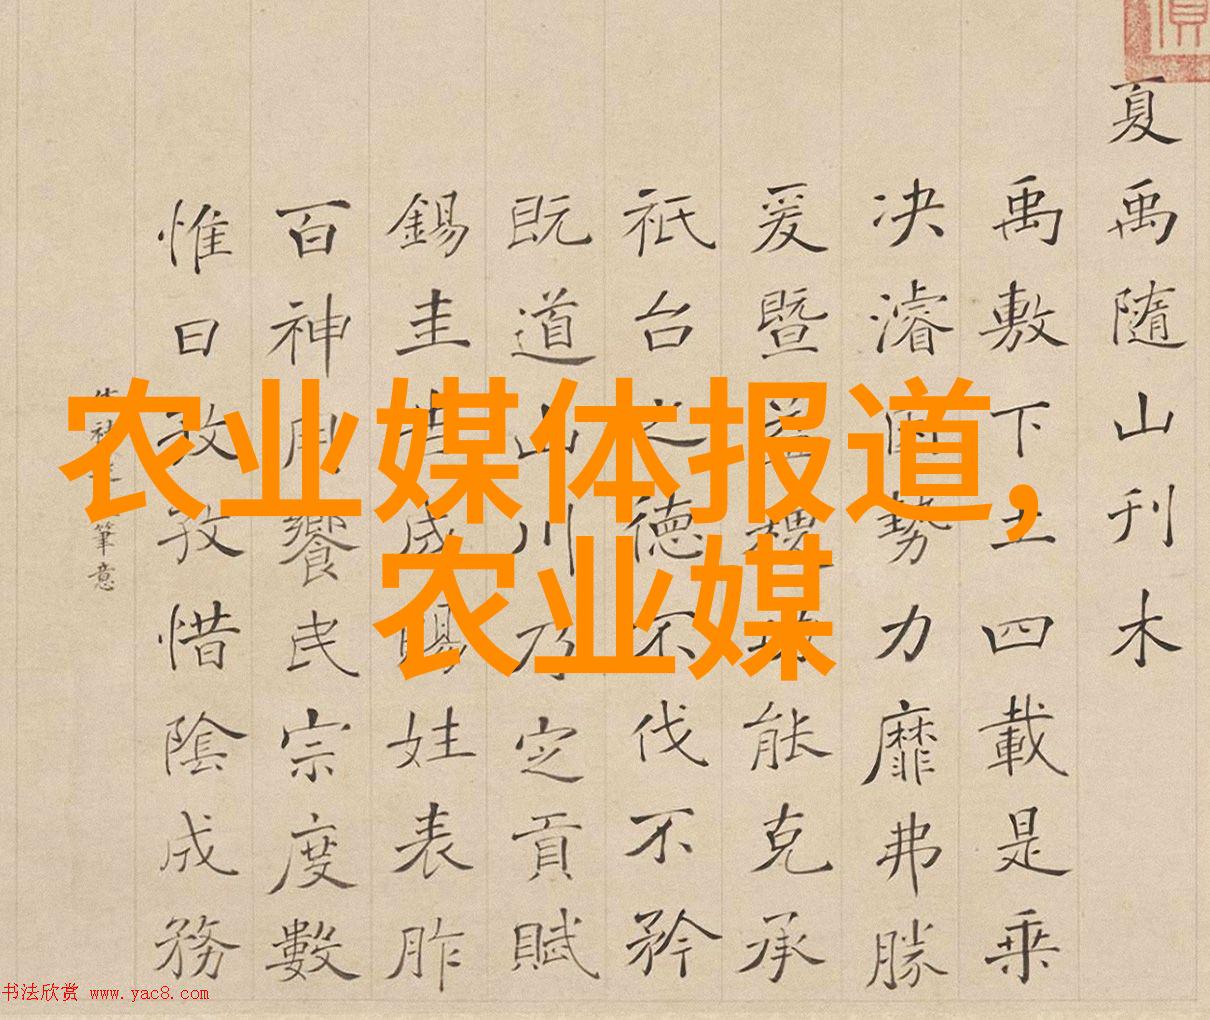 农业媒体报道,
农业媒
夏禹隨山刊木
禹敷下土四載是乘
决濬因勢力靡弗勝
爰暨益稷功能克承
祇台之德不伐不矜
既道山川乃定貢賦
錫圭告成賜姓表胙
百神周饗民宗度數
惟日孜孜惜陰成務
筆意
书法欣赏 www.yac8.com